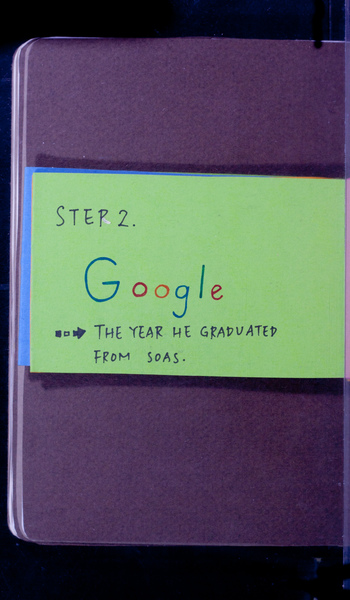 STEP 2.
Google
THE YEAR HE GRADUATED
FROM SOAS.